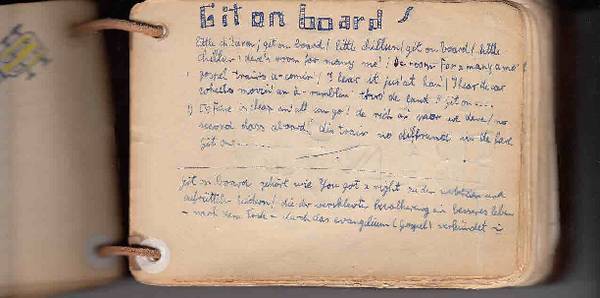 Git on board!
little children, git on board / little children / git on board / little
children / dere's room for many a mo' / De room for many a mo'
gospel train's a-comin' / I hear it jus' at han' / I hear de car
wheels movin' an a-rumblin' thro' de land / git on....
De fare is cheap an' all can go / de rich an' poor are dere / no
second class aboard dis train no difference in de fare
git on....
git on board gehört wie You got a right zu den und
lidern / die der versklavten bevölkerung ein besseres leben
- nach dem tode - durch das evangelium (gospel) verkündet